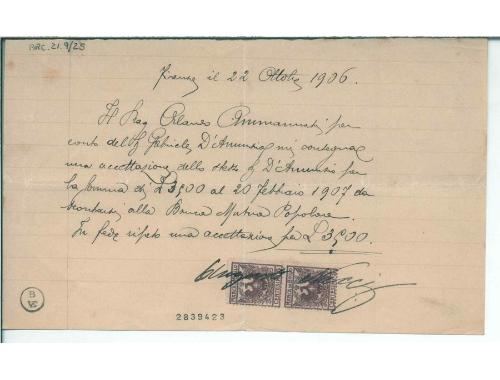 ARC. 21.9/25
Firenze il 22 Ottobre 1906
Il Rag Orlando Ammannati per
conto del Sg Gabriele D'Annunzio mi consegna
una accettazione dello stesso Sg D'Annunzio per
la somma di £3500 al 20 Febbraio 1907 da
scontarsi alla Banca Mutua Popolare.
In fede rilascio una accettazione per £3500.
2839423
B